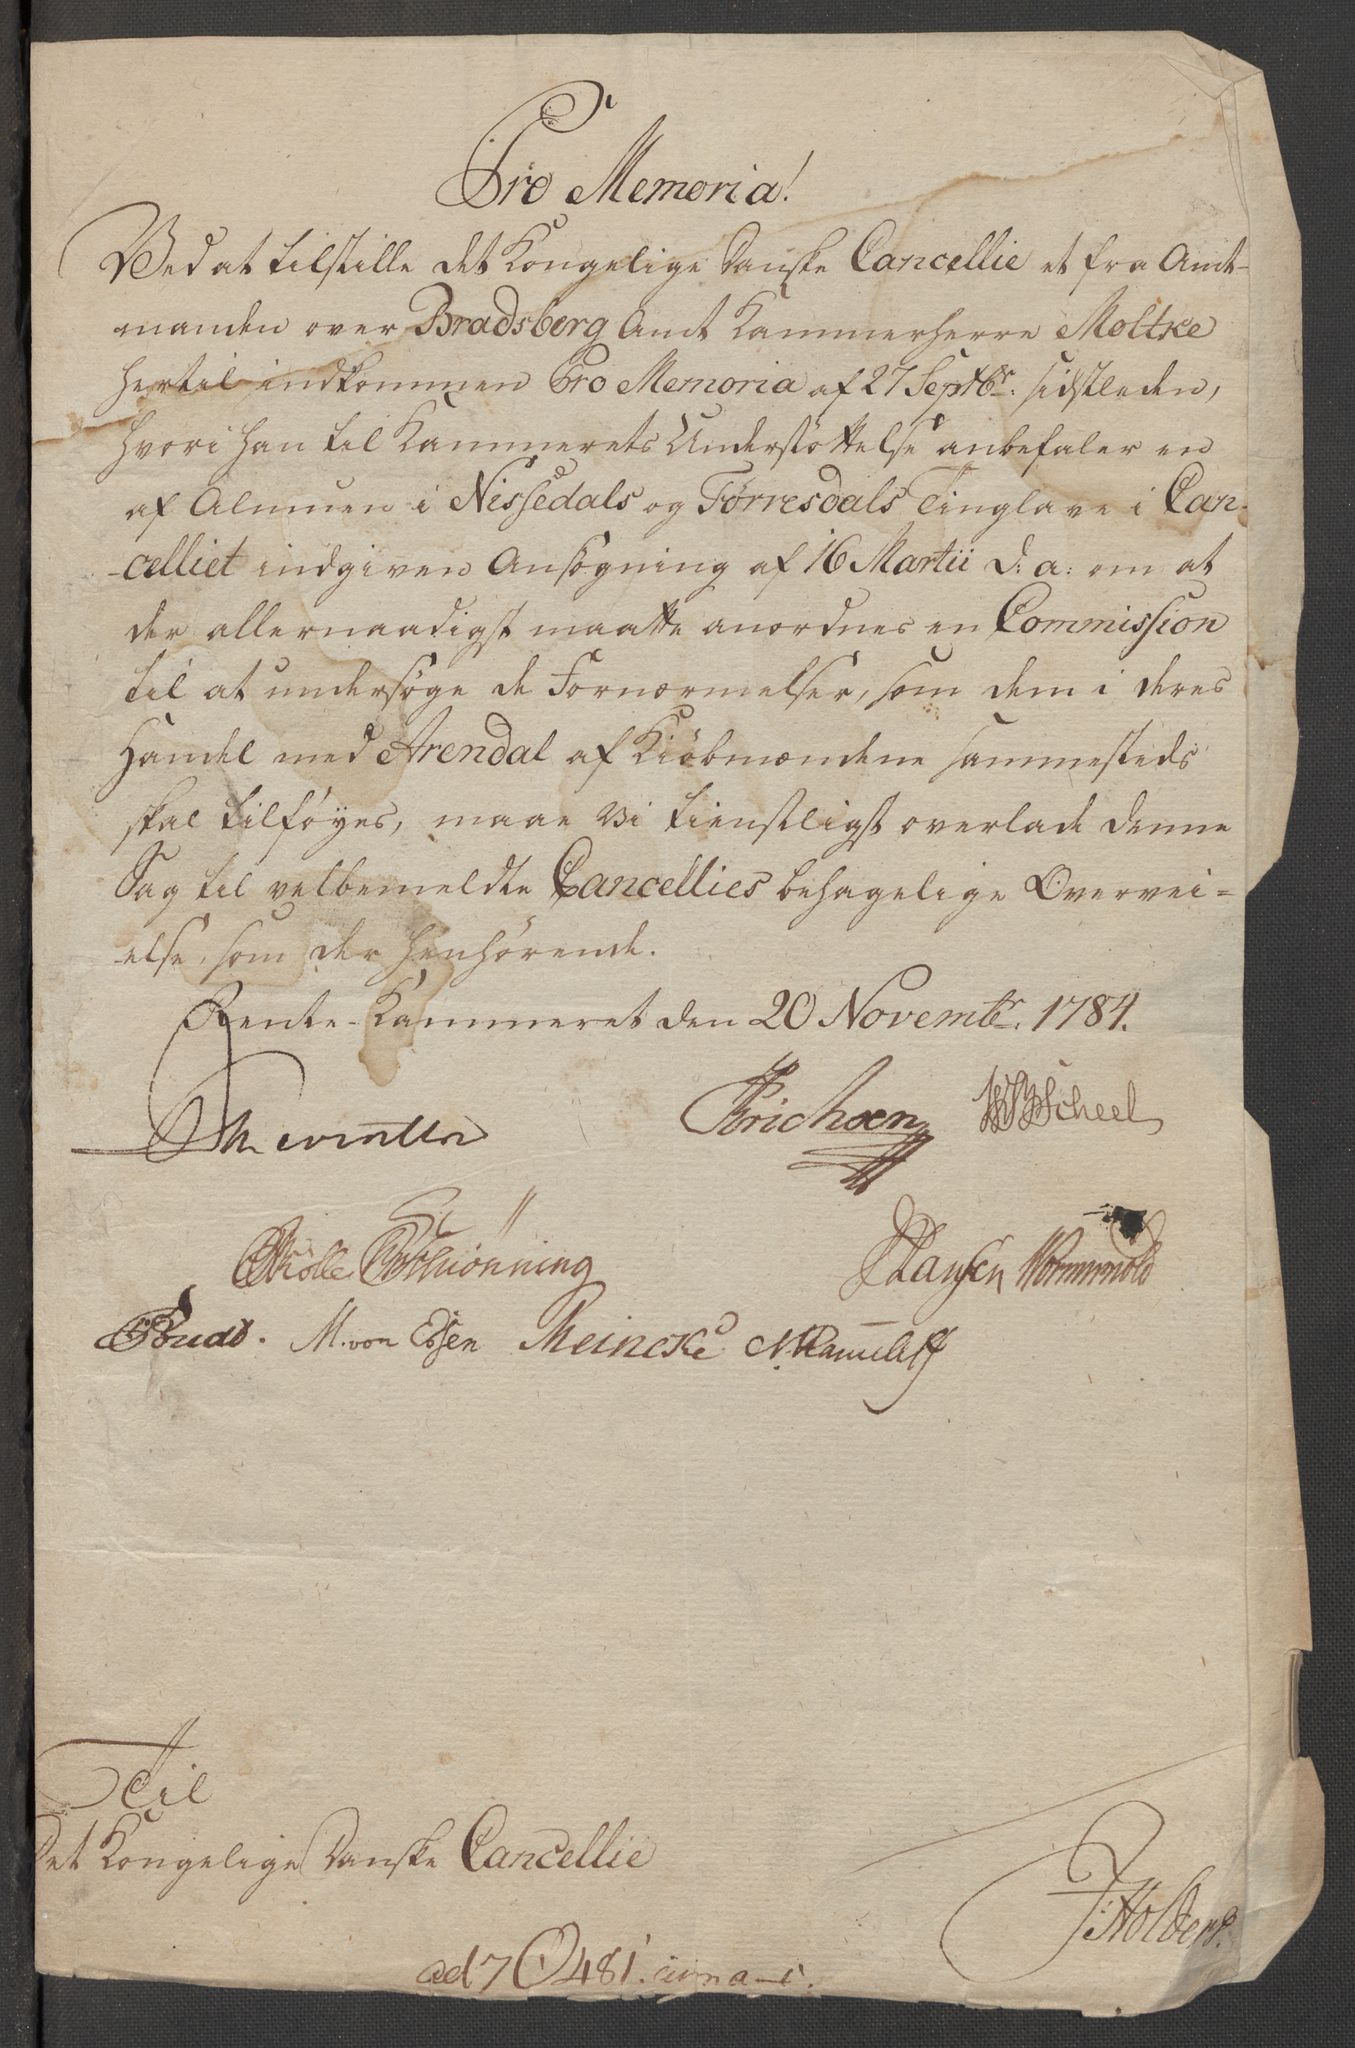 Pro Memoria!
Ved at tilstille det Kongelige Danske Cancellie et fra Amt-
manden over Bradsberg Amt Kammerherre Moltke
hertil indkommen Pro Memoria af 27 Septbr: sidstleden,
hvori han til Kammerets Understöttelse anbefaler en
af Almuen i Nissedals og Tørresdals Tinglave i Can-
-celliet indgiven Ansögning af 16 Martii d: a: om at
der allernaadigst maatte anordnes en Commission
til at undersöge de Fornærmelser, som dem i deres
Handel med Arendal af Kiöbmændene sammesteds
skal tilföyes, maae vi tienstligst overlade denne
Sag til velbemeldte Cancellies behagelige Overvei=
-else, som der henhörende.
Rente-Kammeret den 20 Novembr. 1784.
Erichsen Scheel
Schiönning Hansen Wormwold
M. von Essen Meincke
Til
Det Kongelige Danske Cancellie
Holbers.
ad 7 O 481.